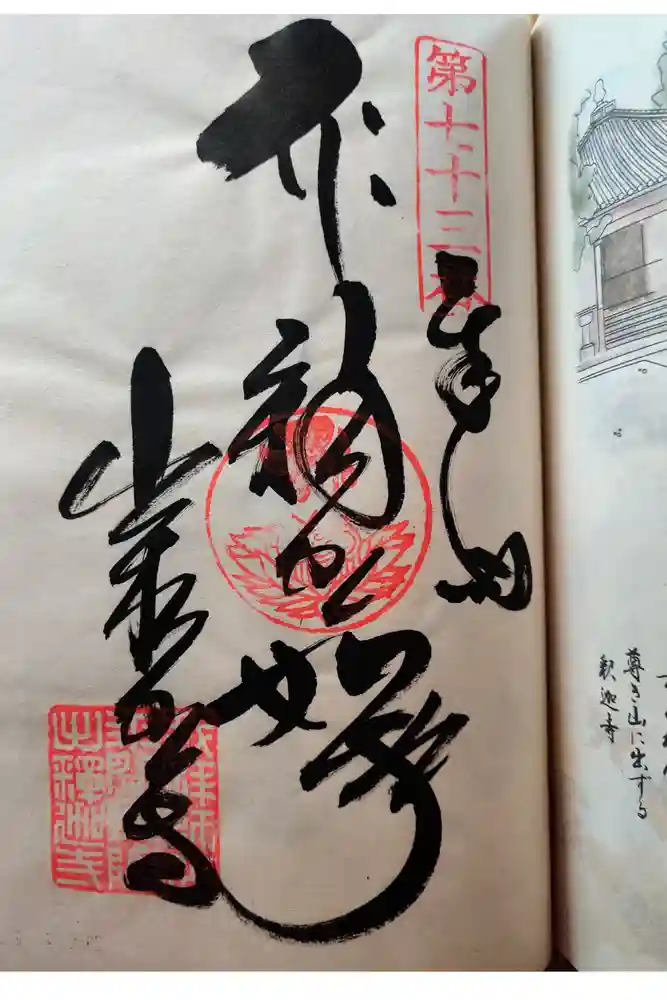 第七十三番
奉納
釈迦如来
出釈迦寺
尊き山に出ずる
釈迦寺